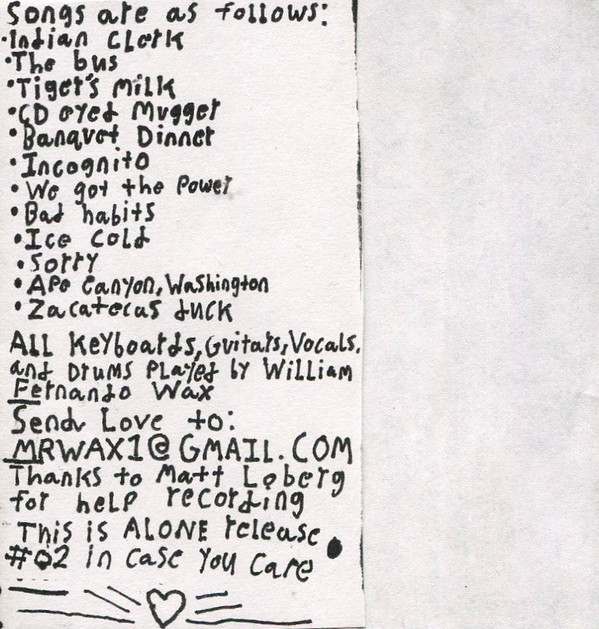 Songs are as follows:
·Indian Clerk
·The bus
·Tiger's Milk
·CD eyed Mugger
·Banquet Dinner
·Incognito
·We got the Power
·Bad habits
·Ice Cold
·Sorry
·Ape Canyon, Washington
·Zacatecas duck
All Keyboards, Guitars, Vocals,
and Drums Played by William
Fernando Wax
Send Love to:
MRWAX1@GMAIL.COM
Thanks to Matt Loberg
for help recording
This is ALONE release
#02 in case you care